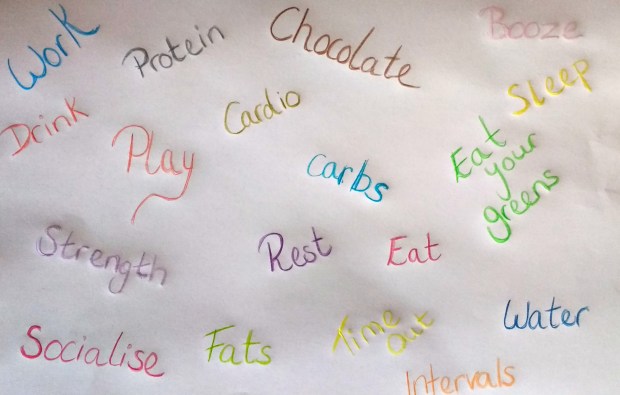 Work
Protein
Chocolate
Booze
Drink
Cardio
Sleep
Play
Carbs
Eat
your
greens
Strength
Rest
Eat
Socialise
Fats
Time
Out
Water
Intervals